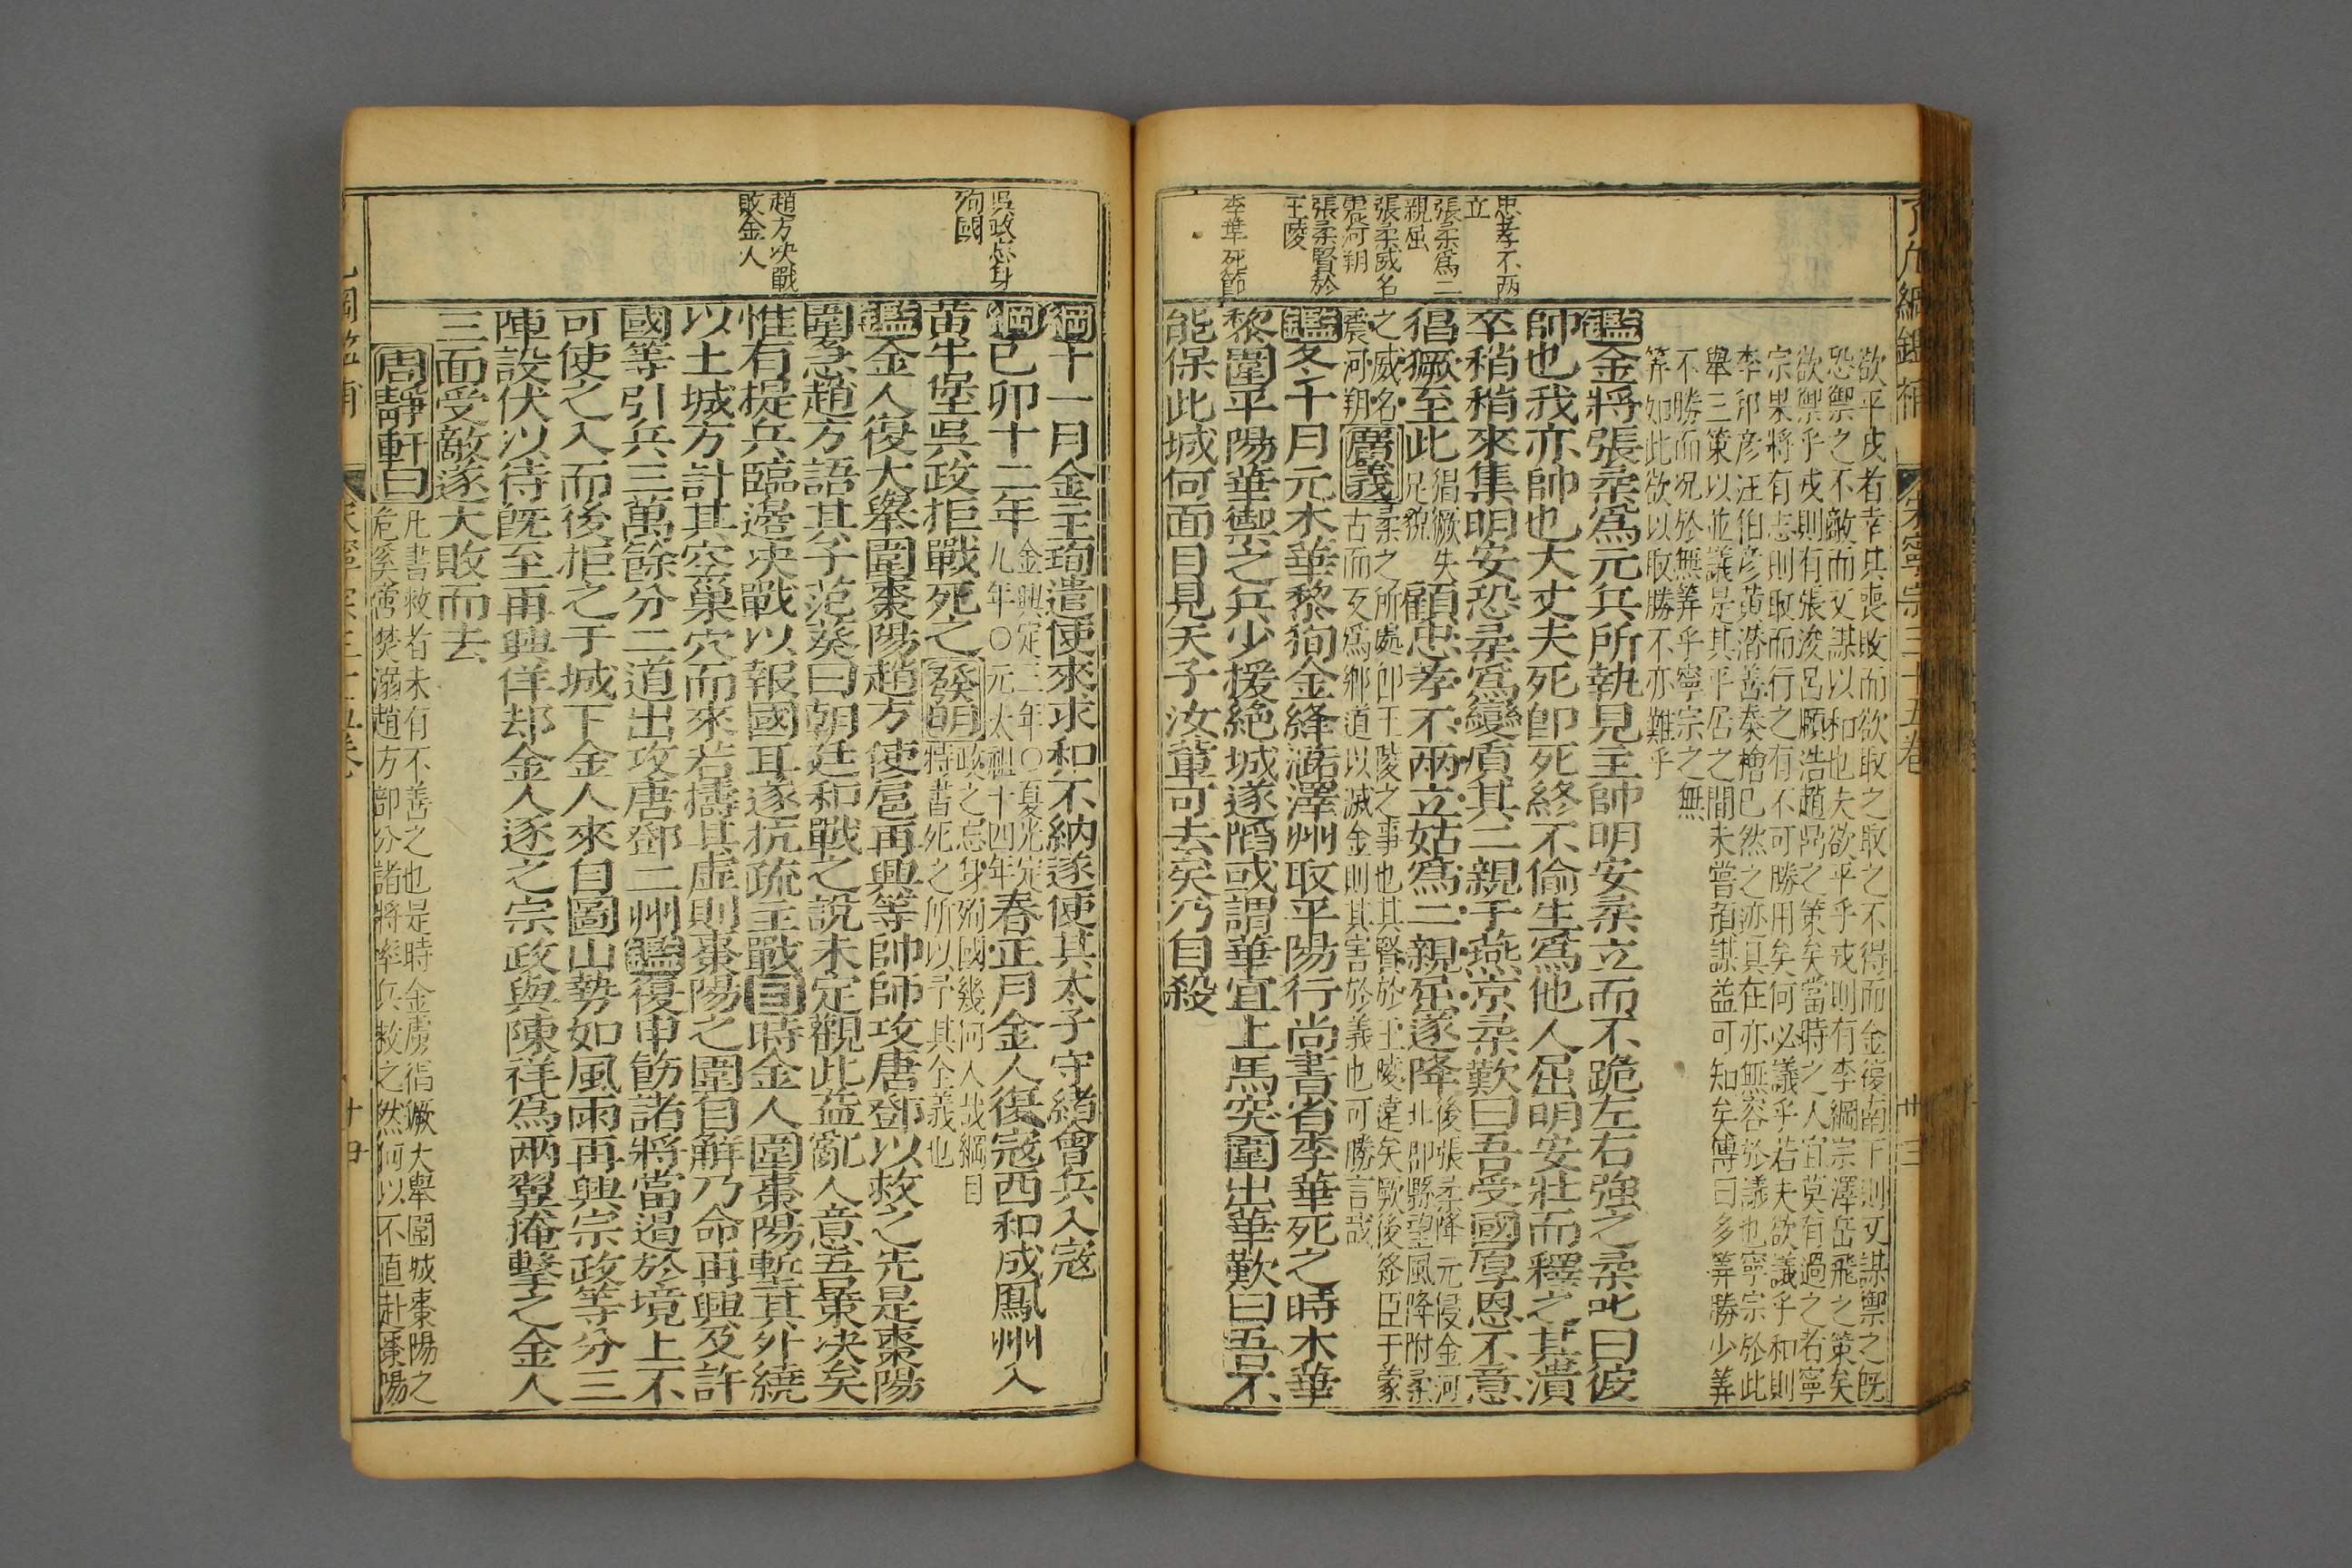 了凡綱鑑補
宋寧宗三十五卷
卅三
忠孝不兩
立
張柔爲二
親屈
張柔威名
震河朔
張柔賢於
王陵
李華死節
欲平戎者幸其喪敗而欲取之取之不得而金復南下則又謀禦之禦之旣
恐禦之不敵而又謀以和也夫欲平乎戎則有李綱宗澤岳飛之策矣
欲禦乎戎則有張浚呂頤浩趙鼎之策矣當時之人宜莫有過之者寧
宗果將有志則取而行之有不可勝用矣何必議乎若夫欲議乎和則
李邦彦汪伯彦黄潛善秦檜已然之亦具在亦無容於議也寧宗於此
舉三策以並議是其平居之間未嘗預謀益可知矣傳曰多筭勝少筭
不勝而况於無筭乎寧宗之無
筭如此欲以取勝不亦難乎
鑑金將張柔爲元兵所執見主帥明安柔立而不跪左右強之柔叱曰彼
帥也我亦帥也大丈夫死卽死終不偷生爲他人屈明安壯而釋之其潰
卒稍稍來集明安恐柔爲變質其二親于燕京柔歎曰吾受國厚恩不意
猖獗至此猖獗失足貌顧忠孝不兩立姑爲二親屈遂降後張柔降元侵金河北郡縣望風降附柔
之威名震河朔廣義柔之所處卽王陵之事也其賢於王陵遠矣厥後金臣于蒙古而反爲鄉道以滅金則其害於義也可勝言哉
鑑冬十月元木華黎狥金絳潞澤州取平陽行尚書省李華死之時木華
黎圍平陽華禦之兵少援絕城遂陷或謂華宜上馬突圍出華歎曰吾不
能保此城何面目見天子汝輩可去矣乃自殺
吳政忘身
殉國
趙方决戰
敗金人
綱十一月金主珣遣使來求和不納遂使其太子守緒會兵入寇
綱己卯十二年金興定三年○夏光定九年○元太祖十四年春正月金人復寇西和成鳳州入
黄牛堡吳政拒戰死之發明政之忘身殉國幾何人哉綱目特書死之所以予其全義也
鑑金人復大舉圍棗陽趙方使扈再興等帥師攻唐鄧以救之先是棗陽
圍急趙方語其子范葵曰朝廷和戰之說未定觀此益亂人意吾策决矣
惟有提兵臨邊决戰以報國耳遂抗疏主戰目時金人圍棗陽塹其外繞
以土城方計其空巢穴而來若擣其虛則棗陽之圍自解乃命再興及許
國等引兵三萬餘分二道出攻唐鄧二州鑑復申飭諸將當遏於境上不
可使之入而後拒之于城下金人來自圖山勢如風雨再興宗政等分三
陣設伏以待旣至再興佯却金人逐之宗政與陳祥爲兩翼掩擊之金人
三面受敵遂大敗而去
周靜軒曰凡書救者未有不善之也是時金虜猖獗大舉圍城棗陽之
危奚啻焚溺趙方部分諸將率兵救之然何以不直赴棗陽